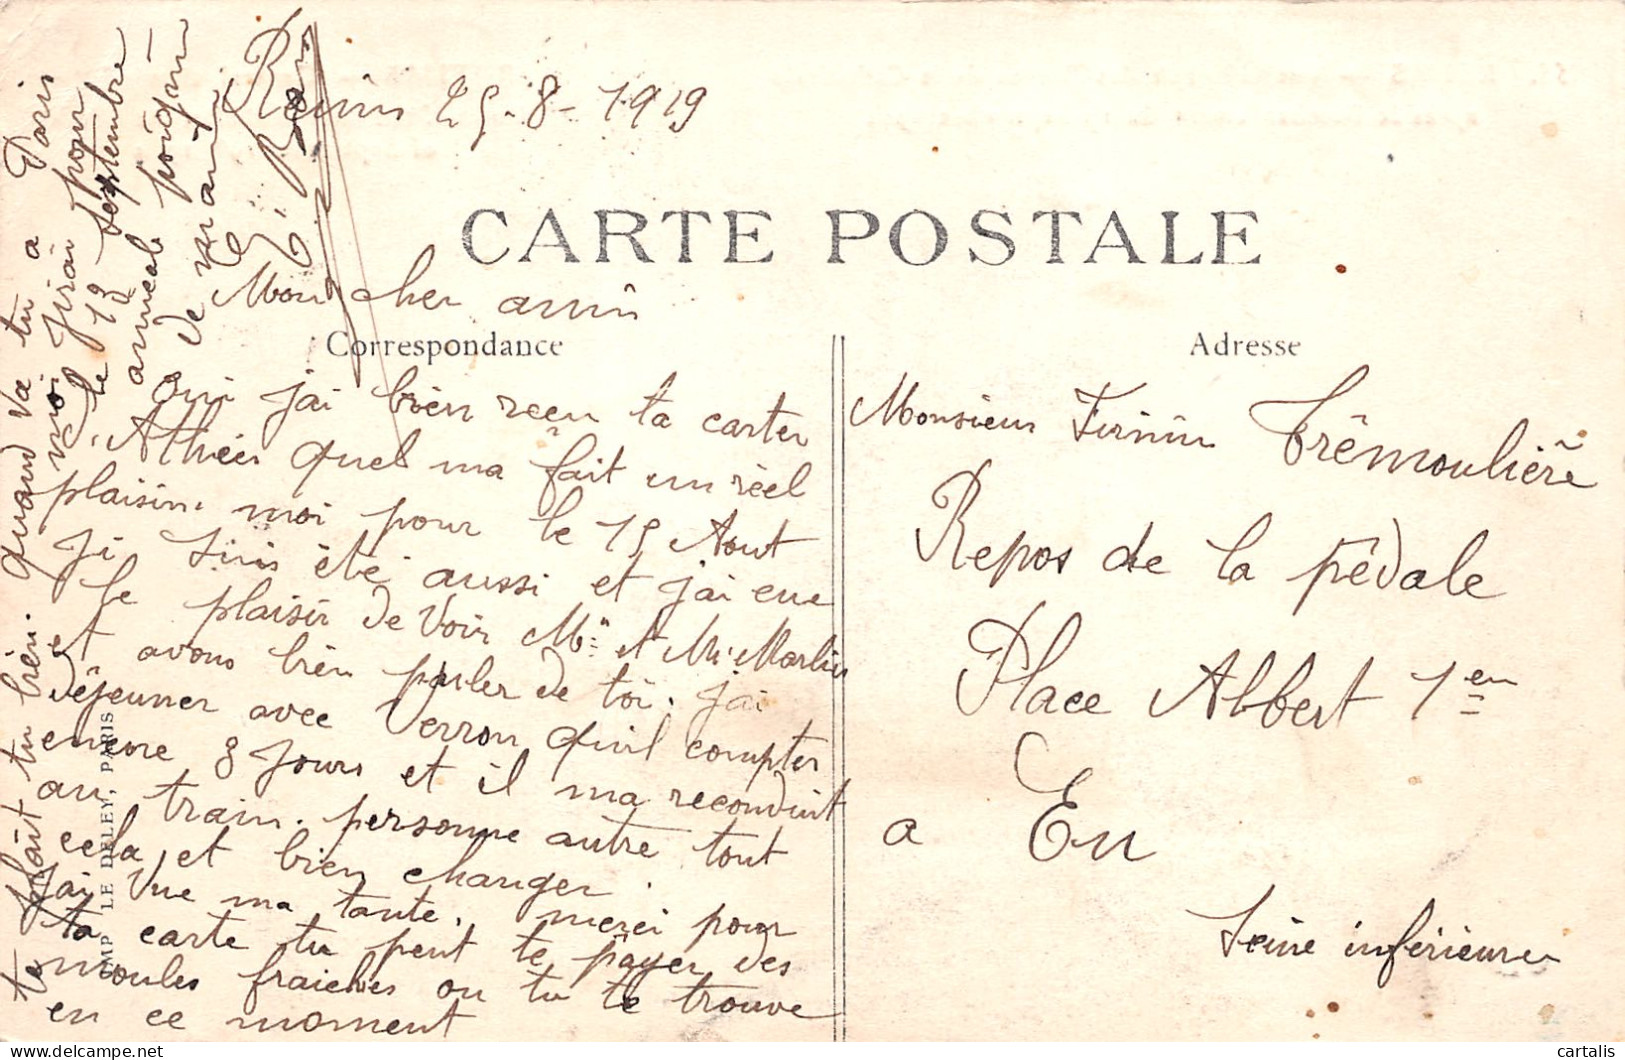 Reims 25-8-1919
CARTE POSTALE
Mon cher ami
Correspondance
Oui jai bien recu ta carter
d'Athées quel ma fait un rèel
plaisir. moi pour le 15 Aout
Ji suis été aussi et j'ai eue
le plaisir de Voir Mr et Me
et avons bien parler de toi. jai
déjeuner avec Verron qu'il compter
encore 8 Jours et il ma reconduit
au train. personne autre tout
cela et bien changer.
Jai Vue ma tante. merci pour
ta carte tu peut te payer des
moules fraiches ou tu te trouve
en ce moment
te plait tu bien. quand va tu a Paris
moi J'irai pour
le 19 septembre
amicale poignée
de main
E.
IMP LE DELEY, PARIS
Adresse
Monsieur Firnin Trêmoulière
Repos de la pédale
Place Albert 1er
a Eu
Seine inférieure
cartalis
delcampe.net